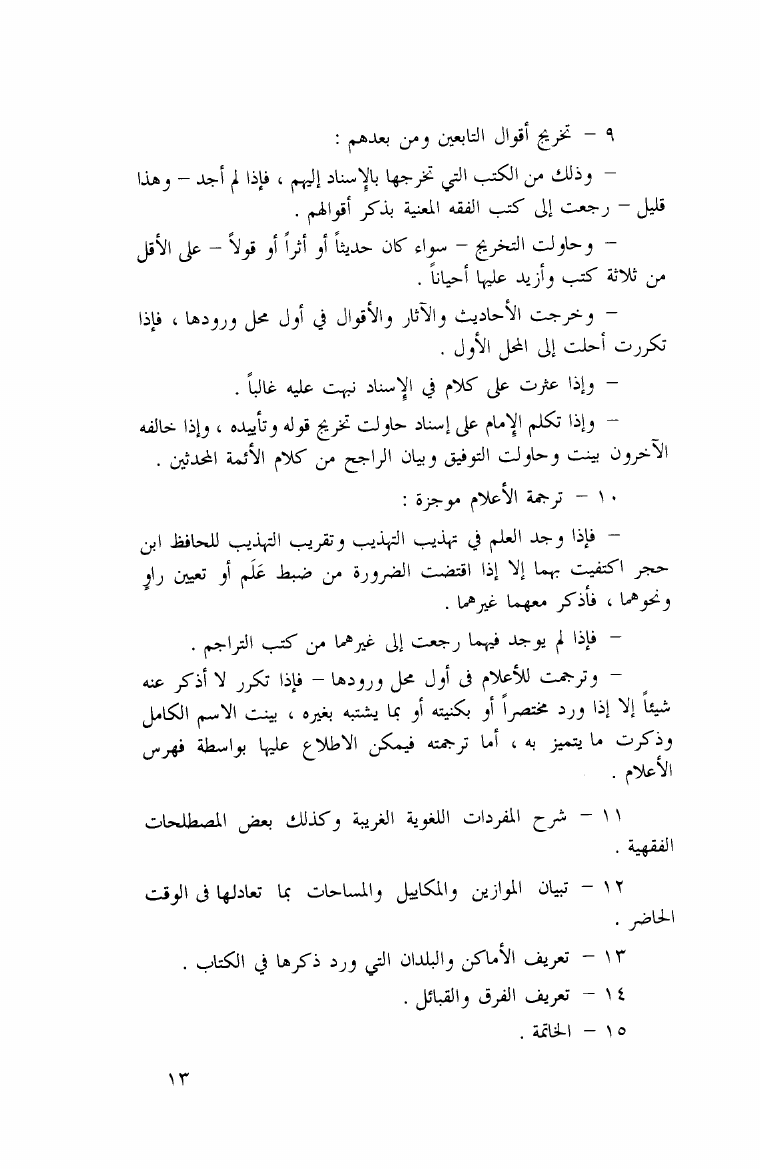 ٩ – تخريج أقوال التابعين ومن بعدهم :
– وذلك من الكتب التي تخرجها بالإسناد إليهم ، فإذا لم أجد – وهذا
قليل – رجعت إلى كتب الفقه المعنية بذكر أقوالهم .
– وحاولت التخريج – سواء كان حديثاً أو أثراً أو قولاً – على الأقل
من ثلاثة كتب وأزيد عليها أحياناً .
– وخرجت الأحاديث والآثار والأقوال في أول محل ورودها ، فإذا
تكررت أحلت إلى المحل الأول .
– وإذا عثرت على كلام في الإسناد نبهت عليه غالباً .
– وإذا تكلم الإمام على إسناد حاولت تخريج قوله وتأييده ، وإذا خالفه
الآخرون بينت وحاولت التوفيق وبيان الراجح من كلام الأئمة المحدثين .
١٠ – ترجمة الأعلام موجزة :
– فإذا وجد العلم في تهذيب التهذيب وتقريب التهذيب للحافظ ابن
حجر اكتفيت بهما إلا إذا اقتضت الضرورة من ضبط عَلَم أو تعيين راوٍ
ونحوهما ، فأذكر معهما غيرهما .
– فإذا لم يوجد فيهما رجعت إلى غيرهما من كتب التراجم .
– وترجمت للأعلام في أول محل ورودها – فإذا تكرر لا أذكر عنه
شيئاً إلا إذا ورد مختصراً أو بكنيته أو بما يشتبه بغيره ، بينت الاسم الكامل
وذكرت ما يتميز به ، أما ترجمته فيمكن الاطلاع عليها بواسطة فهرس
الأعلام .
١١ – شرح المفردات اللغوية الغريبة وكذلك بعض المصطلحات
الفقهية .
١٢ – تبيان الموازين والمكاييل والمساحات بما تعادلها فى الوقت
الحاضر .
١٣ – تعريف الأماكن والبلدان التي ورد ذكرها في الكتاب .
١٤ – تعريف الفرق والقبائل .
١٥ – الخاتمة .
١٣